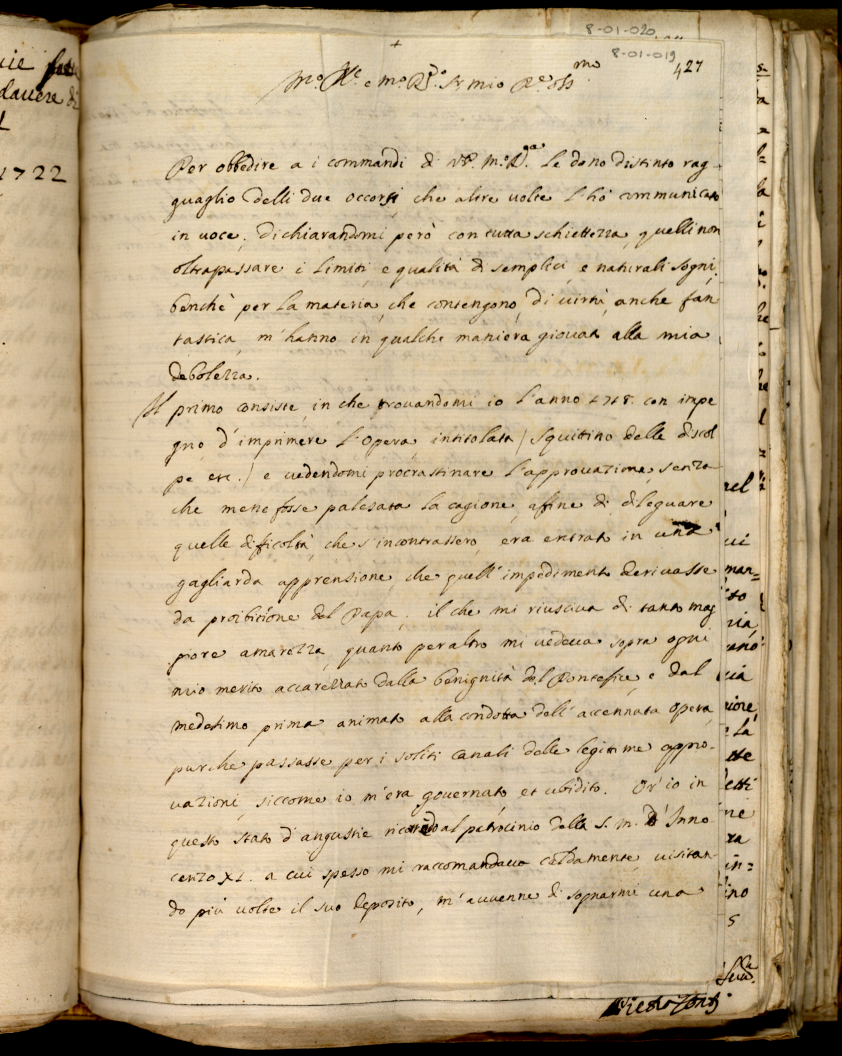 8-01-020
8-01-019
427
+
Mo. Ill.e e mo. Rdo. Sr mio Pne oss.mo
Per obbedire a i commandi di VP. mo. R.da Le dono distinto rag
guaglio delli due occorsi, che altre volte l'hò communicato
in voce; dichiarandomi però con tutta schiettezza, quelli non
oltrapassare i Limiti, e qualità di semplici, e naturali sogni,
benche per la materia, che contengono, di virtù, anche fan
tastica, m'hanno in qualche maniera giovato alla mia
debolezza.
Il primo consiste, in che trovandomi io l'anno 1718. con impe
gno d'imprimere l'Opera, intitolata / Squitino delle discol
pe etc. / e vedendomi procrastinare l'approvazione, senza
che mene fosse palesata la cagione, affine di dileguare
quelle dificoltà, che s'incontrassero, era entrato in una
gagliarda apprensione, che quell'impedimento derivasse
da proibitione del Papa; il che mi riusciva di tanto mag
giore amarezza, quanto peraltro mi vedeva sopra ogni
mio merito accarezzato dalla benignità del Pontefice, e dal
medesimo prima animato alla condotta dell'accennata opera,
purche passasse per i soliti canali delle legitime appro-
vazioni, siccome io m'era governato et ubidito. Or' io in
questo stato d'angustie al patrocinio della S. M. d'Inno
cenzo XI. a cui spesso mi raccomandava caldamente, visitan
do più volte il suo deposito, m'avvenne di sognarmi una
davere di
1722